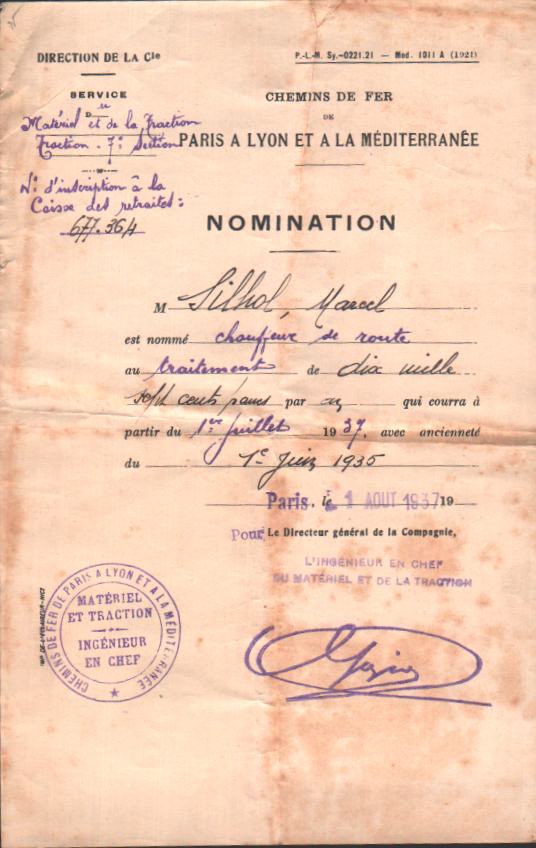 DIRECTION DE LA Cie
P.-L.-M. Sy.-0221.21 — Mod. 1011 A (1921)
SERVICE
Du
Matériel et de la Traction
Traction - 7e Section
N° d'inscription à la
Caisse des retraites :
677.364
CHEMINS DE FER
DE
PARIS A LYON ET A LA MÉDITERRANÉE
NOMINATION
M Silhol, Marcel
est nommé chauffeur de route
au traitement de dix mille
sept cents francs par an qui courra à
partir du 1er juillet 1937, avec ancienneté
du 1er Juin 1935
Paris, le 1 AOUT 1937 19
Pour Le Directeur général de la Compagnie,
L'INGÉNIEUR EN CHEF
DU MATÉRIEL ET DE LA TRACTION
CHEMINS DE FER DE PARIS A LYON ET A LA MÉDITERRANÉE
MATÉRIEL
ET TRACTION
INGÉNIEUR
EN CHEF